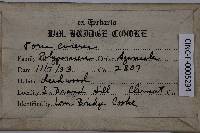 ex Herbario
WM. BRIDGE COOKE
Poria cinerea
Family Polyporaceae Order Agaricales
Date 11/5/33 No. 2807
Habitat Deadwood
Locality Hill Clermont Co.
Identified by Wm Bridge Cooke
CINC-F-0005294